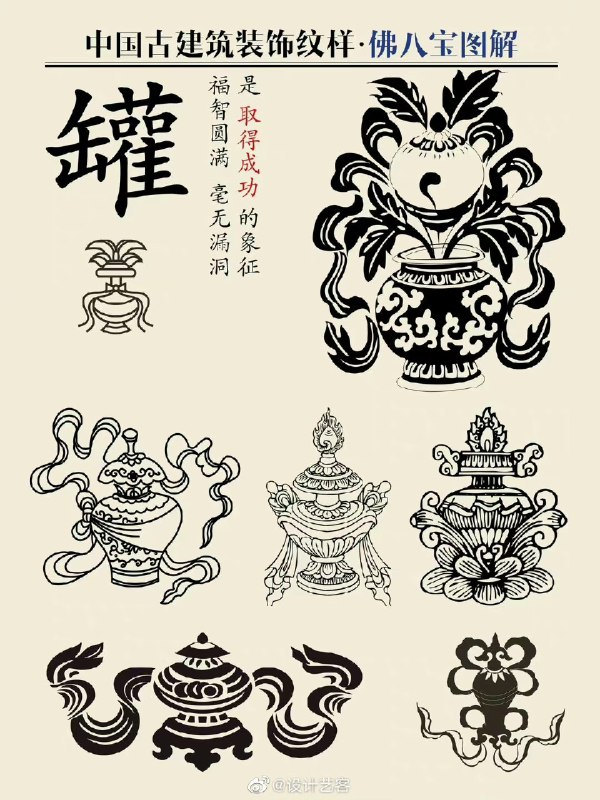 中国古建筑装饰纹样·佛八宝图解
罐
是取得成功的象征
福智圆满 毫无漏洞
@设计艺客